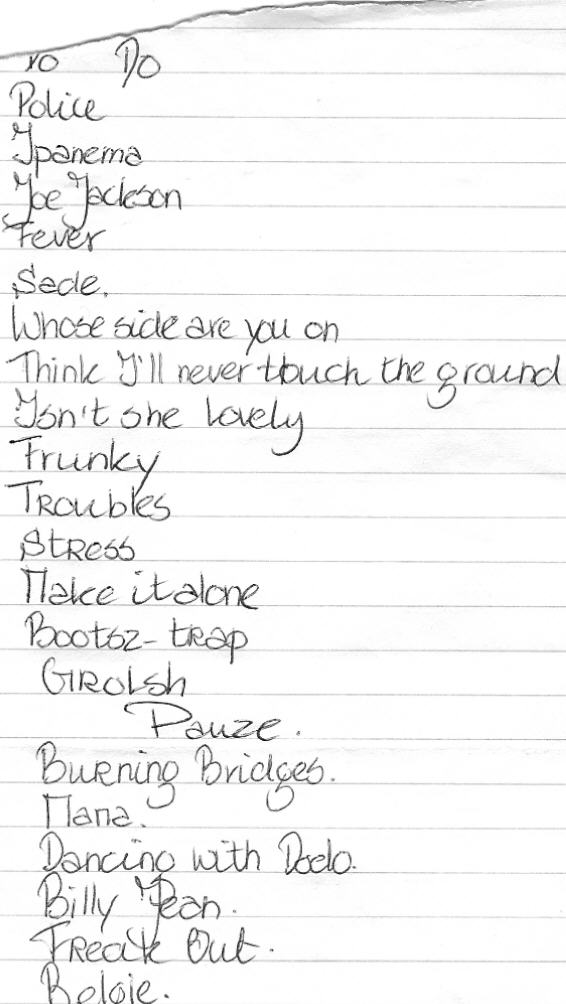 Do
Police
Ipanema
Joe Jackson
Fever
Sade.
Whose side are you on
Think I'll never touch the ground
Isn't she lovely
Frunky
Troubles
Stress
Make it alone
Bootsz-trap
GROLsh
Pauze.
Burning Bridges.
Mana.
Dancing with Dodo.
Billy Jean.
Freak Out.
Belgie.